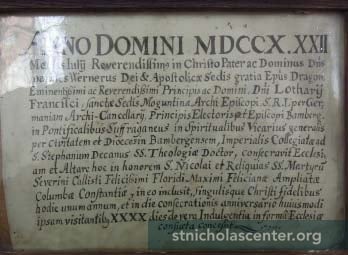 ANNO DOMINI MDCCX.XXII
Mensis Julij Reverendissimus in Christo Pater ac Dominus Dns
Wernerus Dei & Apostolicæ Sedis gratia Epūs Dragon.
Eminentissimi ac Reverendissimi Principis ac Domini, Dni Lotharij
Francisci, sanctæ Sedis Moguntinæ Archi Episcopi S.R.I. per Ger-
maniam Archi-Cancellarij Principis Electoris et Episcopi Bamberg.
in Pontificalibus Suffraganeus in Spiritualibus Vicarius generalis
per Civitatem et Diœcesin Bambergensem, Imperialis Collegiatæ ad
S. Stephanum Decanus SS. Theologiæ Doctor, consecravit Ecclesi,
am et Altare hoc in honorem S. Nicolai et Reliquias SS. Martyrū
Severini Callisti Felicissimi Floridi Maximi Feliciani Ampliatæ
Columbæ Constantiæ, in eo inclusit, singulisque Christi fidelibus
hodie unum annum, et in die consecrationis anniversario huiusmodi
ipsam visitantibꝫ XXXX dies de vera Indulgentia in forma Ecclesiæ
consueta concessit
stnicholascenter.org